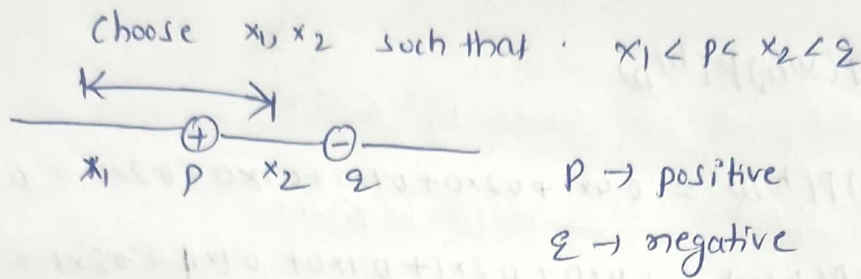 Choose x₁, x₂ such that . x₁ < p < x₂ < q
+ -
x₁ p x₂ q
p → positive
q → negative